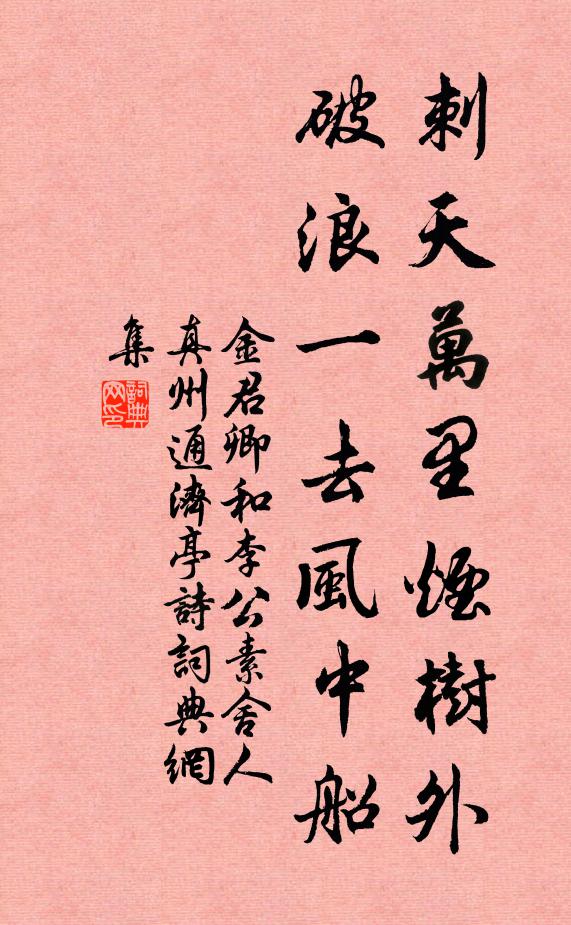 刺天萬里煙樹外
破浪一去風中船
金君卿和李公素舍人
真州通濟亭詩詞典網
集
詞典
网印